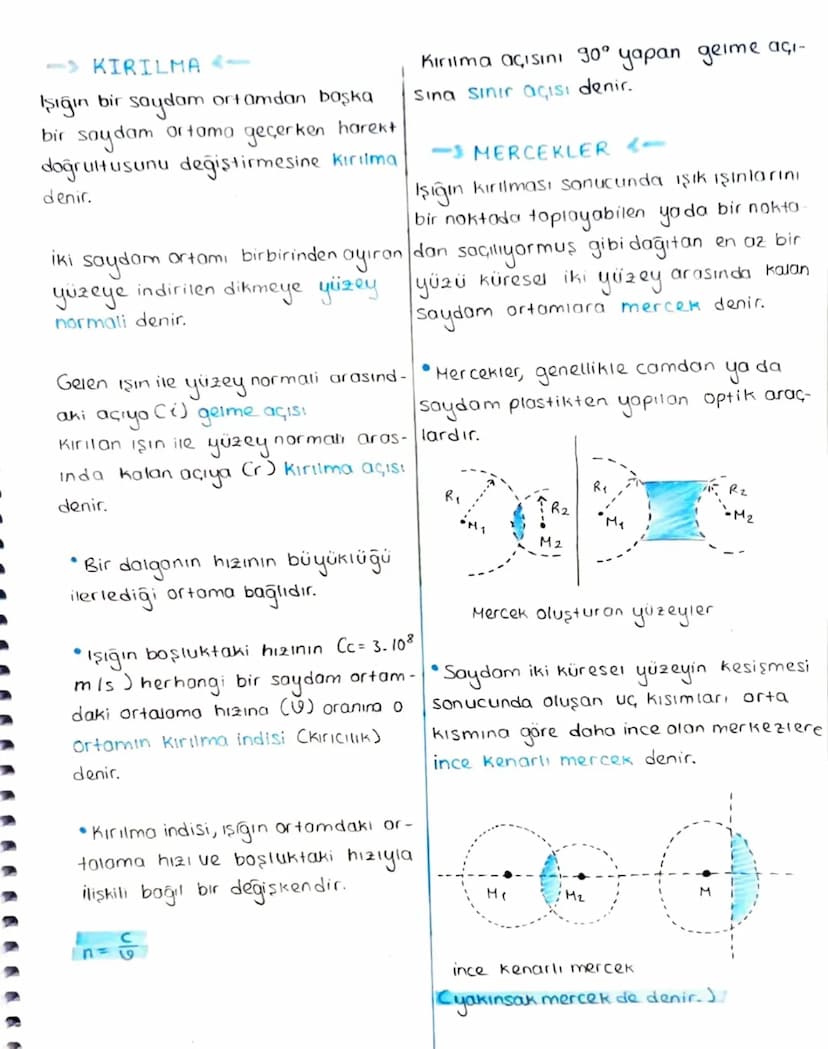 KIRILMA
Işığın bir saydam ortamdan başka
bir saydam ortama geçerken harekt
doğrultusunu değiştirmesine kırılma
denir.
İki saydam ortamı birbirinden ayıran
yüzeye indirilen dikmeye yüzey
normali denir.
Gelen ışın ile yüzey normali arasınd-
aki açıya (i) gelme açısı
Kırılan ışın ile yüzey normalı aras-
ında kalan açıya (r) kırılma açısı
denir.
• Bir dalganın hızının büyüklüğü
ilerlediği ortama bağlıdır.
• Işığın boşluktaki hızının (c= 3.10⁸
m/s) herhangi bir saydam ortam-
daki ortalama hızına (ϑ) oranına o
ortamın kırılma indisi (kırıcılık)
denir.
• Kırılma indisi, ışığın ortamdaki or-
talama hızı ve boşluktaki hızıyla
ilişkili bağıl bir değişkendir.
n = c/ϑ
Kırılma açısını 90° yapan gelme açı-
sına sınır açısı denir.
MERCEKLER
Işığın kırılması sonucunda ışık ışınlarını
bir noktada toplayabilen yada bir nokta-
dan saçılıyormuş gibi dağıtan en az bir
yüzü küresel iki yüzey arasında kalan
saydam ortamlara mercek denir.
• Mercekler, genellikle camdan ya da
saydam plastikten yapılan optik araç-
lardır.
R₁ M₁ R₂ M₂ R₁ M₁ R₂ M₂
Mercek oluşturan yüzeyler
• Saydam iki küresel yüzeyin kesişmesi
sonucunda oluşan uç kısımları orta
kısmına göre daha ince olan merkezlere
ince kenarlı mercek denir.
M₁ M₂ M
ince kenarlı mercek
(yakınsak mercek de denir.)